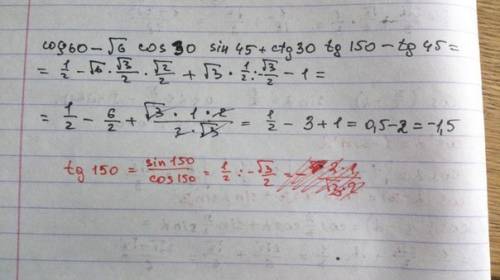 cos 60 − √6 cos 30 sin 45 + ctg 30 tg 150 − tg 45 =
= 1/2 − √6 · √3/2 · √2/2 + √3 · 1/2 : √3/2 − 1 =
= 1/2 − 6/2 + √3 · 1 · 2/2 · √3 = 1/2 − 3 + 1 = 0,5 − 2 = −1,5
tg 150 = sin 150/cos 150 = 1/2 : −√3/2 =